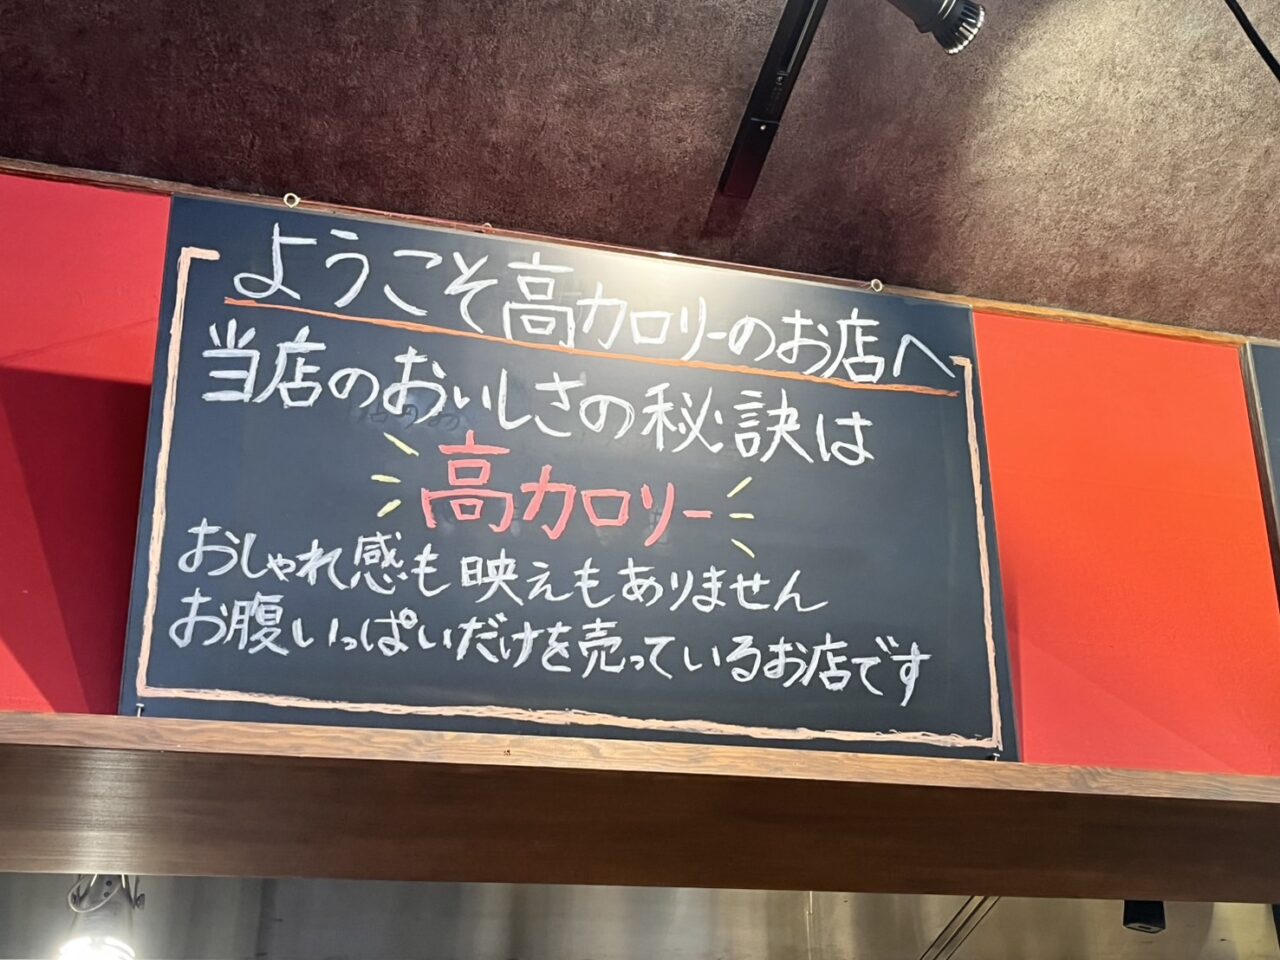 ようこそ高カロリーのお店へ
当店のおいしさの秘訣は
高カロリー
おしゃれ感も映えもありません
お腹いっぱいだけを売っているお店です